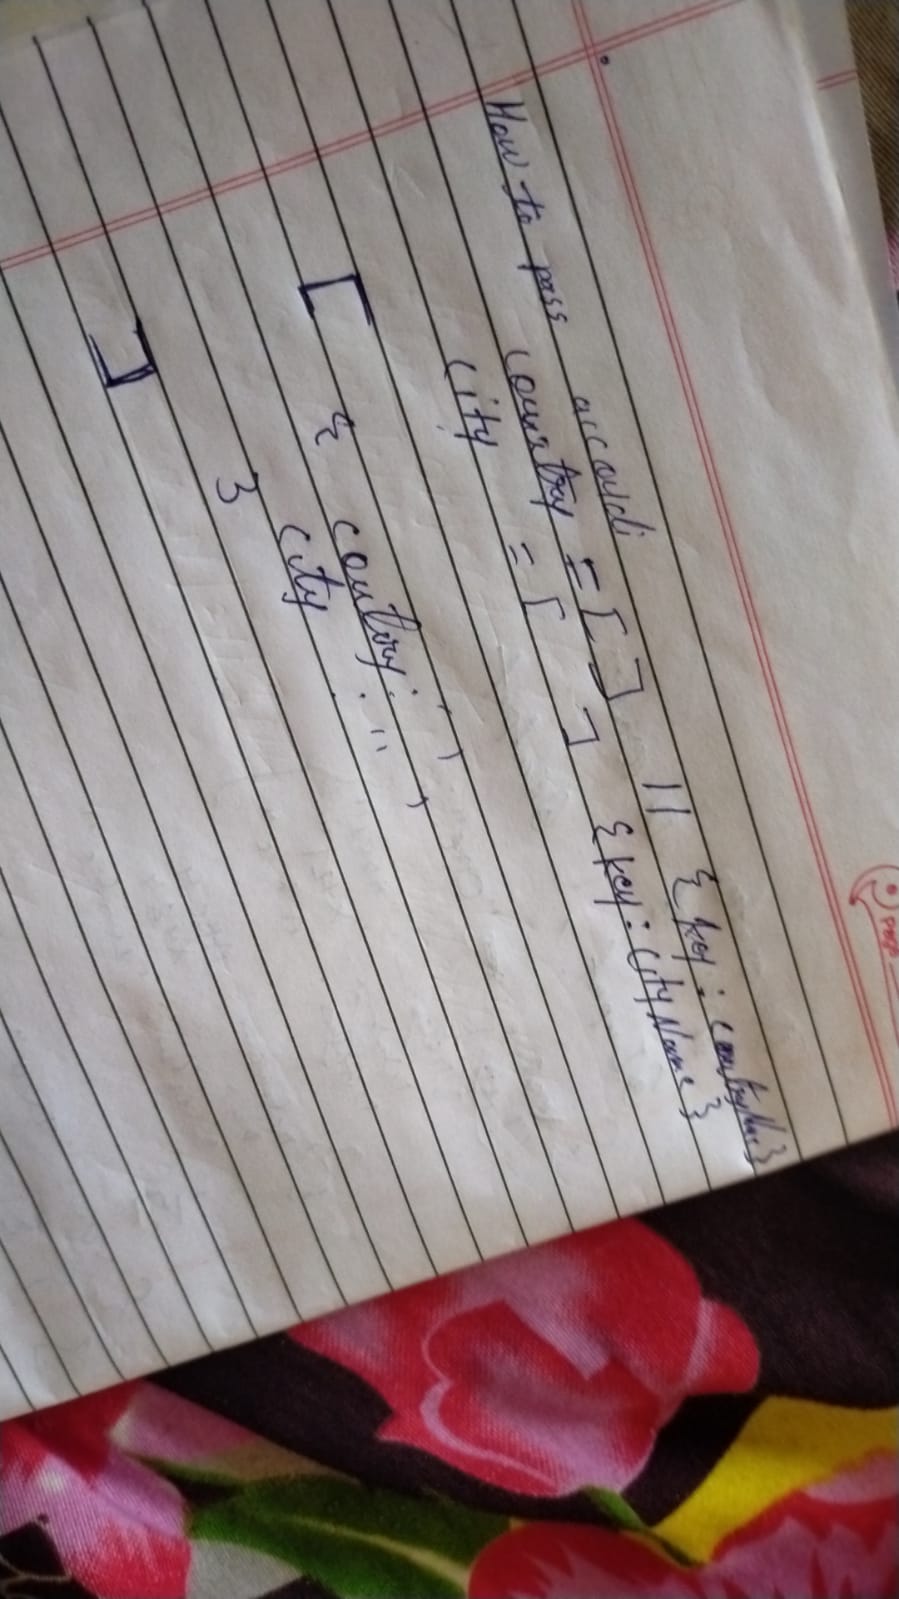 How to pass accordi
country = [ ] || { key : countryName }
city = [ ] { key : cityName }
[
{ country : '' ,
city : '' ,
}
]
Page